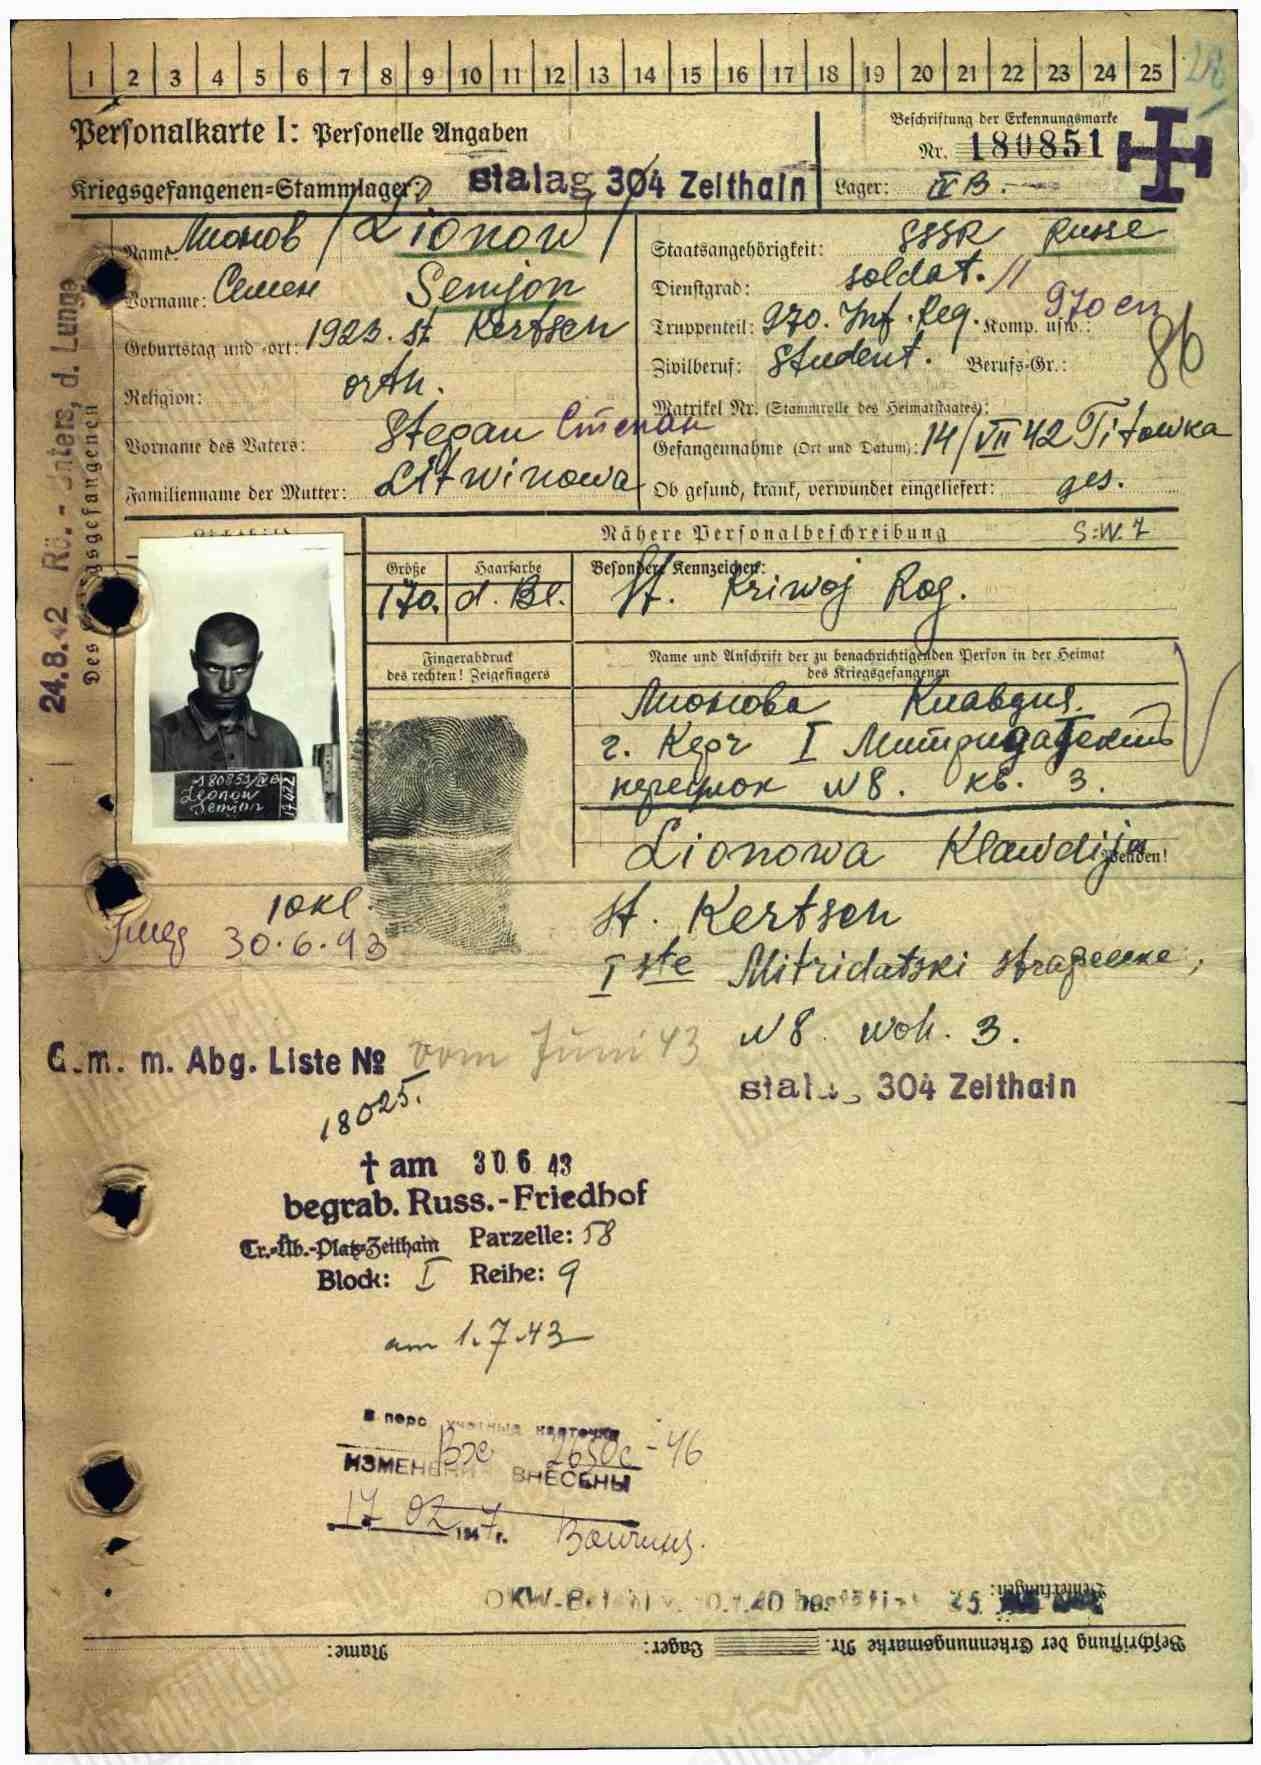 1 2 3 4 5 6 7 8 9 10 11 12 13 14 15 16 17 18 19 20 21 22 23 24 25
Personalkarte I: Personelle Angaben
Beschriftung der Erkennungsmarke
Nr. 180851
Kriegsgefangenen=Stammlager: Stalag 304 Zeithain
Lager: IV B.
Name: Лионов / Lionow /
Staatsangehörigkeit: SSSR Russe
Vorname: Семен Semjon
Dienstgrad: soldat.
Geburtstag und -ort: 1923. st Kertsch
Truppenteil: 970. Inf. Reg. Komp. usw.: 970 сп
Zivilberuf: student. Berufs-Gr.: 86
Religion: orth.
Matrikel Nr. (Stammrolle des Heimatstaates):
Vorname des Vaters: Stepan Степан
Gefangennahme (Ort und Datum): 14/VII 42 Titowka
Familienname der Mutter: Litwinowa
Ob gesund, krank, verwundet eingeliefert: ges.
24.8.42 Rö. - Unters. d. Lunge
Des Kriegsgefangenen
Nähere Personalbeschreibung
Größe Haarfarbe Besondere Kennzeichen:
170. d. Bl. St. Kriwoj Rog.
Fingerabdruck
des rechten! Zeigefingers
Name und Anschrift der zu benachrichtigenden Person in der Heimat
des Kriegsgefangenen
Лионова Клавдия.
г. Керч I Митридатский
переулок N8. кв. 3.
180851/IVB
Leonow
Semjon
Lionowa Klawdija
Wenden!
10 кл.
30.6.43
st. Kertsch
I ste Mitridatski
N8. woh. 3.
G.m. m. Abg. Liste № vom Juni 43
Stalag 304 Zeithain
18025.
† am 30 6 43
begrab. Russ.-Friedhof
Tr.-Üb.-Platz-Zeithain Parzelle: 58
Block: I Reihe: 9
am 1.7.43
В перс учетные карточки
Вх 2650с-46
ИЗМЕНЕНИЯ ВНЕСЕНЫ
17 02 1947 г.
Bemerkungen:
Beschriftung der Erkennungsmarke Nr. Lager: Name: